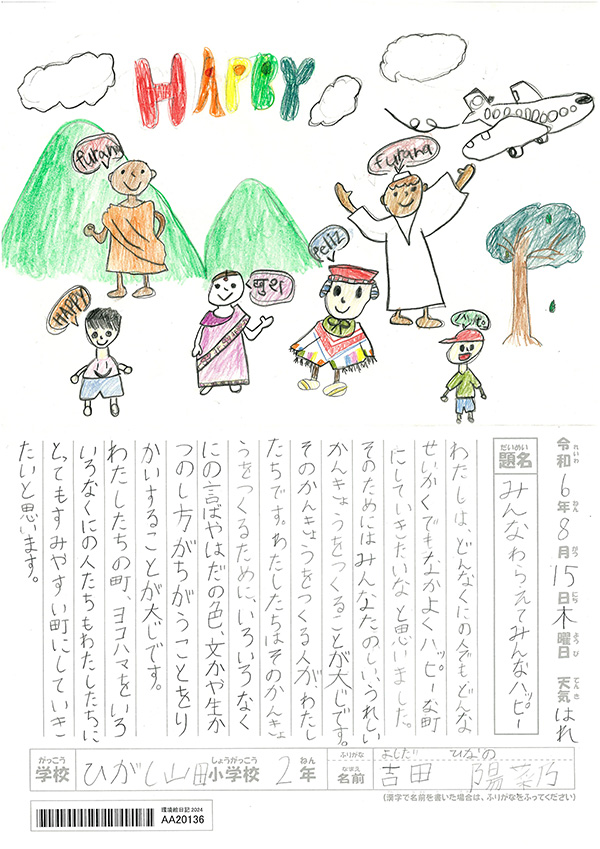 HAPPY
furaha
furaha
feliz
खुश
HAPPY
ハッピー
令和6年8月15日木曜日 天気 はれ
れいわ ねん がつ にち ようび てんき
だいめい
題名
みんなわらえてみんなハッピー
わたしは、どんなくにの人でも、どんな
せいかくでもなかよくハッピーな町
にしていきたいなと思いました。
そのためにはみんなたのしい、うれしい
かんきょうをつくることが大じです。
そのかんきょうをつくる人が、わたし
たちです。わたしたちはそのかんきょ
うをつくるために、いろいろなく
にの言ばやはだの色、文かや生か
つのし方がちがうことをり
かいすることが大じです。
わたしたちの町、ヨコハマをいろ
いろなくにの人たちもわたしたちに
とってもすみやすい町にしていき
たいと思います。
がっこう しょうがっこう ねん
学校 ひがし山田小学校 2年
ふりがな よしだ ひなの
なまえ
名前 吉田 陽彩乃
(漢字で名前を書いた場合は、ふりがなをふってください)
環境絵日記2024
AA20136